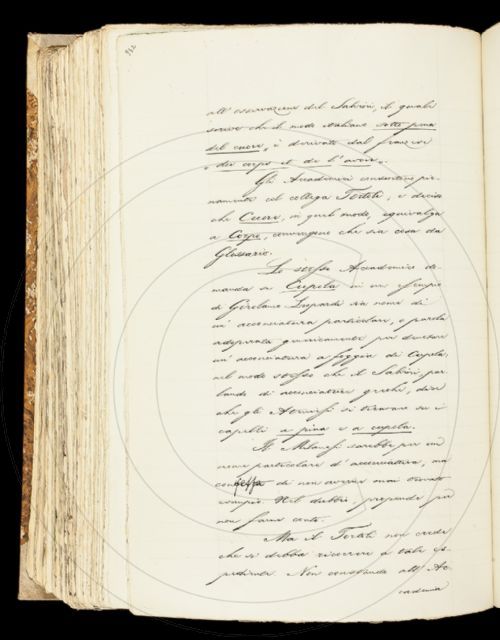 942
all' osservazione del Salvini, il quale
scrive che il modo italiano sotto pena
del cuore, è derivato dal francese
des corps et de l'avoir.
Gli Accademici consentono pie-
namente col collega Tortoli, e decide
che Cuore, in quel modo, equivalga
a Corpo, conveniene che sia cosa da
Glossario.
Lo stesso Accademico do-
manda se Cupola in un esempio
di Girolamo Leopardi sia nome di
un' acconciatura particolare, o parola
adoperata genericamente per denotare
un' acconciatura a foggia di Cupola,
nel modo stesso che il Salvini, par-
lando di acconciature greche, dice
che gli Ateniesi si tiravano su i
capelli a pina e a cupola.
Il Milanesi sarebbe per un
nome particolare d' acconciatura, ma
confessa di non averne mai trovato
esempio. Nel dubbio, propende per
non farne conto.
Ma il Tortoli non crede
che si debba ricorrere a tale es-
pediente. Non consenta all' Ac-
cademia